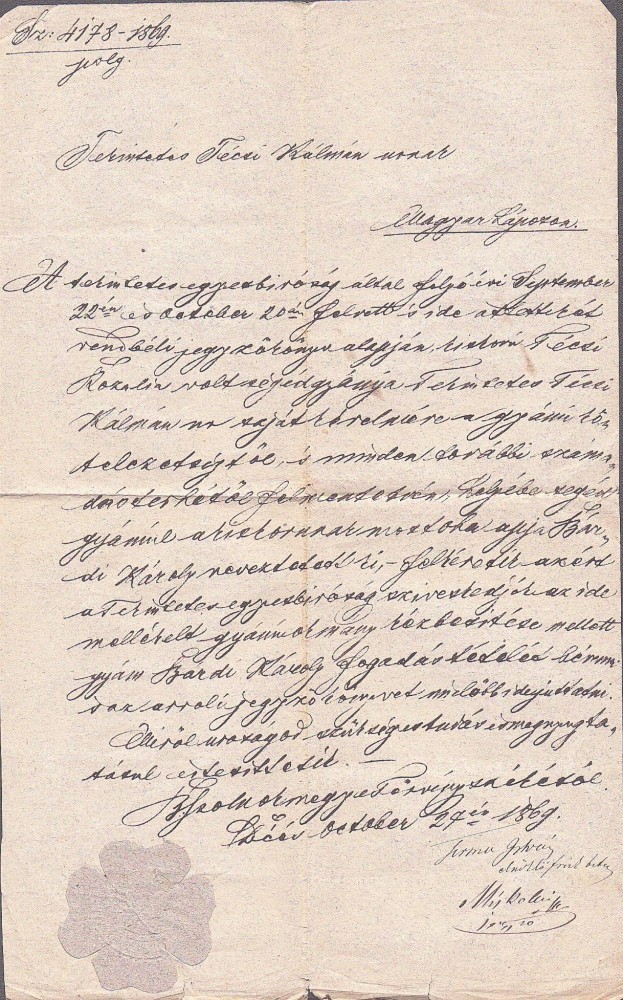 Sz: 4178-1869.
polg.
Temintetes Técsi Kálmán urnak
Magyar Láposon.
A temintetes egyesbiróság által folyó évi September
22én és October 20án felvett s ide áttett két
rendbéli jegykönyv alapján, kiskorú Técsi
Rozalia volt segédgyámja Temintetes Técsi
Kálmán ur saját kérelmére a gyámi kö-
telezetségtől, és minden további száma-
dás terhétől felmentetvén, helyébe segéd
gyámúl a kiskorunak mostoha apja Bár-
di Károly neveztetett ki, – felkéretik azért
a Temintetes egyesbiróság sziveskedjék az ide
mellékelt gyámi okmány kézbesitése mellett
gyám Bardi Károly fogadástételét
az arroli jegykönyvet mielőbb idejuttatni.
Miről uraságod szükséges tudás és megnyugta-
tásul értesittetik. —
B Szolnokmegye Törvényszékétől.
Deés October 24én 1869.
István